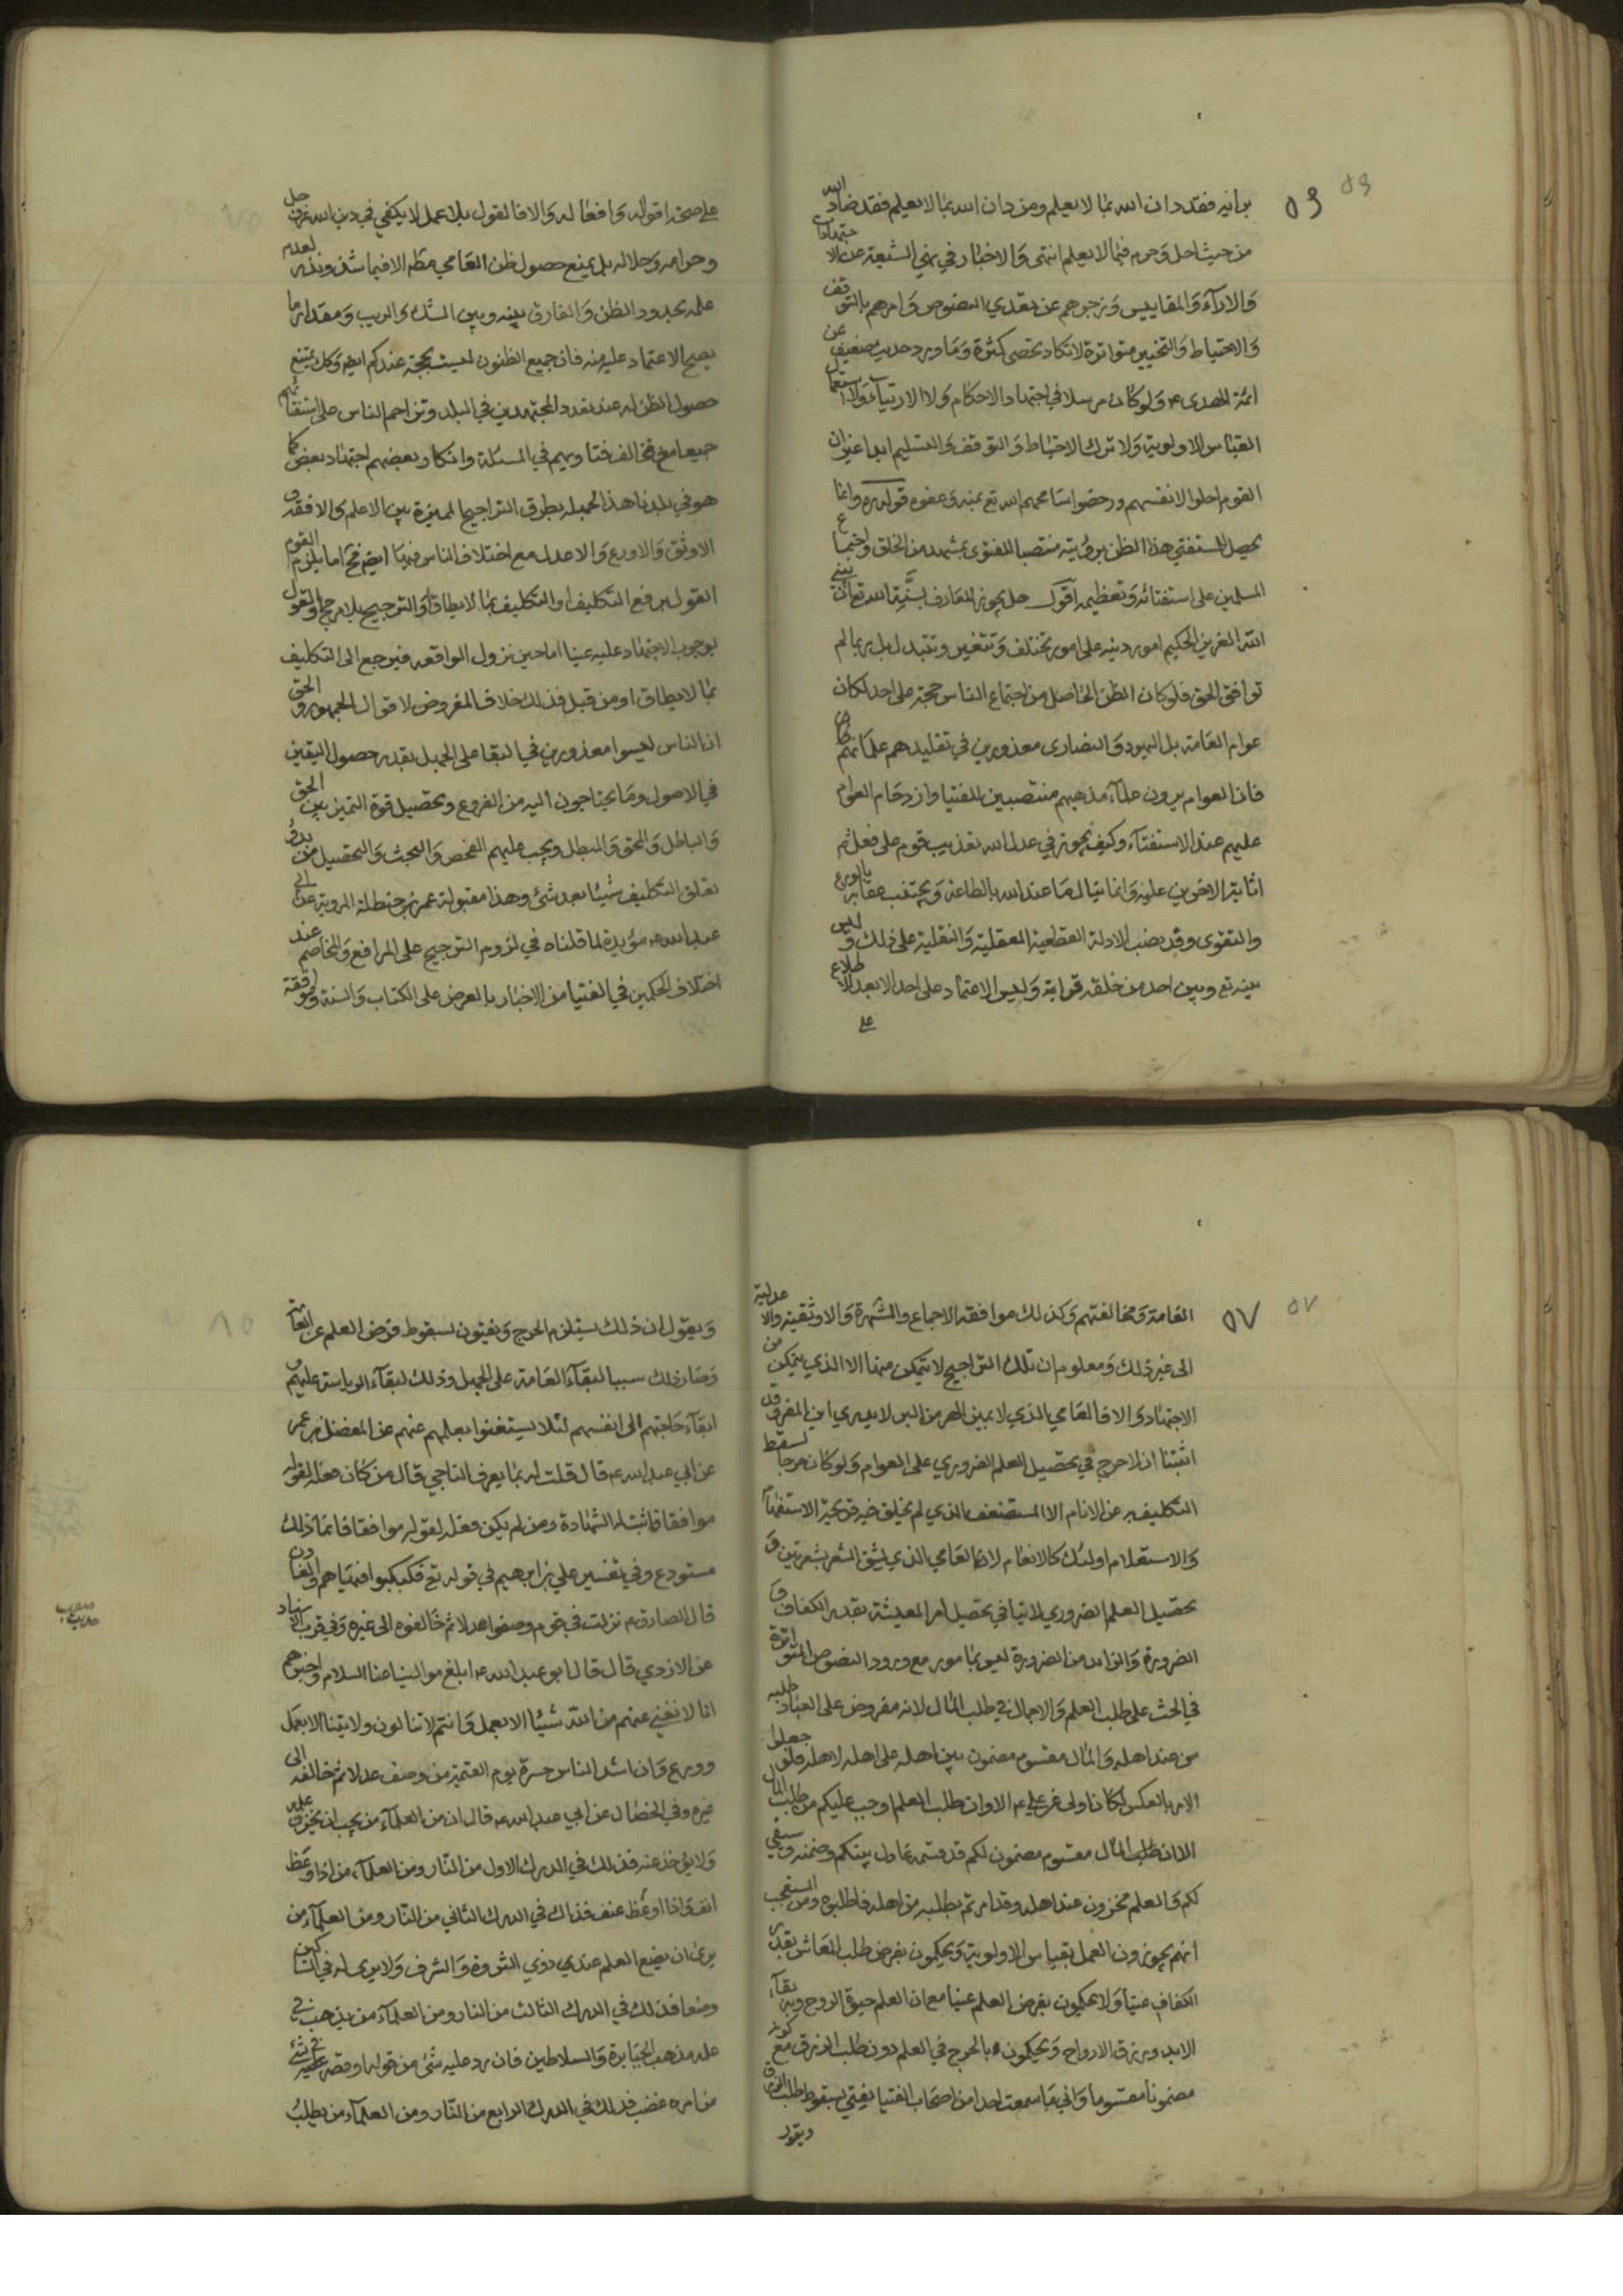 ۵۶
برايه فقد دان الله بما لا يعلم ومن دان الله بما لا يعلم فقد ضاد الله
من حيث احل وحرم فيما لا يعلم انتهى والاخبار في نهي الشيعة عن الاجتهادات
والاراء والمقاييس وزجرهم عن تعدي النصوص وامرهم بالتوقف
والاحتياط والتخيير متواترة لا تكاد تحصى كثرة وما ورد حديث ضعيف عن
ائمة الهدى ع ولو كان مرسلا في اجتهاد الاحكام ولا الارتياء ولا استعمال
القياس والاولوية ولا ترك الاحتياط والتوقف والتسليم ابدا غير ان
القوم احلوا لانفسهم ورخصوا سامحهم الله تع بمنه وعفوه قوله ره وانما
يحصل للمستفتي هذا الظن برؤيته منتصبا للفتوى بمشهد من الخلق واجتماع
المسلمين على استفتائه وتعظيمه اقول هل يجوز للعارف بسنة الله تع ان يبني
الله العزيز الحكيم امور دينه على امور تختلف وتتغير وتتبدل بل ربما لم
توافق الحق فلو كان الظن الحاصل من اجتماع الناس حجة على احد لكان
عوام العامة بل اليهود والنصارى معذورين في تقليدهم علمائهم
فان العوام يرون علماء مذهبهم منتصبين للفتيا وازدحام العوام
عليهم عند الاستفتاء وكيف يجوز في عدل الله تعذيب قوم على فعل ثم
اثابة الاخرين عليه وانما ينال ما عند الله بالطاعة ويجتنب عقابه بالورع
والتقوى وقد نصب الادلة القطعية العقلية والنقلية على ذلك وليس
بينه تع وبين احد من خلقه قرابة وليس الاعتماد على احد الا بعد الاطلاع
على
على صحة اقواله وافعاله والا فالقول بلا عمل لا يكفي في دين الله عز وجل
وحرامه وحلاله بل يمنع حصول ظن العامي مظم الا فيما شذ وندر لعدم
علمه بحدود الظن والفارق بينه وبين الشك والريب ومقدار ما
يصح الاعتماد عليه منه فان جميع الظنون ليست بحجة عندكم ايضا وكك يمتنع
حصول الظن له عند تعدد المجتهدين في البلد وتزاحم الناس على استفتائهم
جميعا مع تخالف فتاويهم في المسئلة وانكار بعضهم اجتهاد بعض كما
هو في بلدنا هذا لجهله بطرق التراجيح المميزة بين الاعلم والافقه و
الاوثق والاورع والاعدل مع اختلاف الناس فيها ايضا فح اما يلزم القوم
القول برفع التكليف او التكليف بما لا يطاق او الترجيح بلا مرجح او القول
بوجوب الاجتهاد عليه عينا اما حين نزول الواقعه فيرجع الى التكليف
بما لا يطاق او من قبل فذلك خلاف المفروض لاقوال الجمهور والحق
ان الناس ليسوا معذورين في البقا على الجهل بقدر حصول اليقين
في الاصول وما يحتاجون اليه من الفروع وتحصيل قوة التميز بين الحق
والباطل والمحق والمبطل ويجب عليهم الفحص والبحث والتحصيل من بدو
تعلق التكليف شيئا بعد شئ وهذا مقبولة عمر بن حنظلة المروية عن ابي
عبد الله ع مؤيدة لما قلناه في لزوم الترجيح على المرافع والمخاصم عند
اختلاف الحكمين في الفتيا من الاخبار بالعرض على الكتاب والسنة وموافقة
۵۷
العامة ومخالفتهم وكذلك موافقة الاجماع والشهرة والاوثقية والاعدلية
الى غير ذلك ومعلوم ان تلك التراجيح لا يتمكن منها الا الذي يتمكن من
الاجتهاد والا فالعامي الذي لا يميز الهر من البر لا يدري اين المفر وقد
اثبتنا ان لا حرج في تحصيل العلم الضروري على العوام ولو كان حرجا لسقط
التكليف به عن الانام الا المستضعف الذي لم يخلق فيه قريحة الاستفهام
والاستعلام اولئك كالانعام لا العامي الذي يشق الشعر بشعرتين و
تحصيل العلم الضروري لا ينافي تحصيل امر المعيشة بقدر الكفاف و
الضرورة والزائد من الضرورة ليس بمامور مع ورود النصوص المتواترة
في الحث على طلب العلم والاجمال في طلب المال لانه مفروض على العباد طلبه
من عند اهله والمال مقسوم مضمون بين اهله على اهله لاهله فلو جعلوا
الامر بالعكس لكان اولى فعن علي ع الا وان طلب العلم اوجب عليكم من طلب المال
الا ان طلب المال مقسوم مضمون لكم قد قسمه عادل بينكم وضمنه وسيفي
لكم والعلم مخزون عند اهله وقد امرتم بطلبه من اهله فاطلبوه ومن المستعجب
انهم يجوزون العمل بقياس الاولوية ويحكمون بفرض طلب المعاش بقدر
الكفاف عينا ولا يحكمون بفرض العلم عينا مع ان العلم حيوة الروح وبه بقاء
الابد وبه رزق الارواح ويحكمون بالحرج في العلم دون طلب الرزق مع كونه
مضمونا مقسوما واني ما سمعت احدا من اصحاب الفتيا يفتي بسقوط طلب الرزق
ويقول
ويقول ان ذلك يستلزم الحرج ويفتون بسقوط فرض العلم عن العامة
وصار ذلك سببا لبقاء العامة على الجهل وذلك لبقاء الرياسة عليهم و
ابقاء حاجتهم الى انفسهم لئلا يستغنوا بعلمهم عنهم عن المفضل بن عمر
عن ابي عبد الله ع قال قلت له بما يعرف الناجي قال من كان فعله لقوله
موافقا فاثبت له الشهادة ومن لم يكن فعله لقوله موافقا فانما ذلك
مستودع وفي تفسير علي بن ابرهيم في قوله تع فكبكبوا فيها هم والغاون
قال الصادق ع نزلت في قوم وصفوا عدلا ثم خالفوه الى غيره وفي قرب الاسناد
عن الازدي قال قال ابو عبد الله ع ابلغ موالينا عنا السلام واخبرهم
انا لا نغني عنهم من الله شيئا الا بعمل وانهم لا ينالون ولايتنا الا بعمل
وورع وان اشد الناس حسرة يوم القيمة من وصف عدلا ثم خالفه الى
غيره وفي الخصال عن ابي عبد الله ع قال ان من العلماء من يحب ان يخزن علمه
ولا يؤخذ عنه فذلك في الدرك الاول من النار ومن العلماء من اذا وعظ
انف واذا وعظ عنف فذاك في الدرك الثاني من النار ومن العلماء من
يرى ان يضع العلم عند ذوي الثروة والشرف ولا يرى له في المساكين
وضعا فذلك في الدرك الثالث من النار ومن العلماء من يذهب في
علمه مذهب الجبابرة والسلاطين فان رد عليه شئ من قوله او قصر في شئ
من امره غضب فذلك في الدرك الرابع من النار ومن العلماء من يطلب